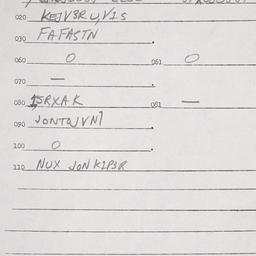 020 KEJV3R U,V1S
030 FAFASTN
060 0 061 0
070 —
080 ISRXAK 081 —
090 JONTQJVN1
100 0
110 NUX JON K1P3R